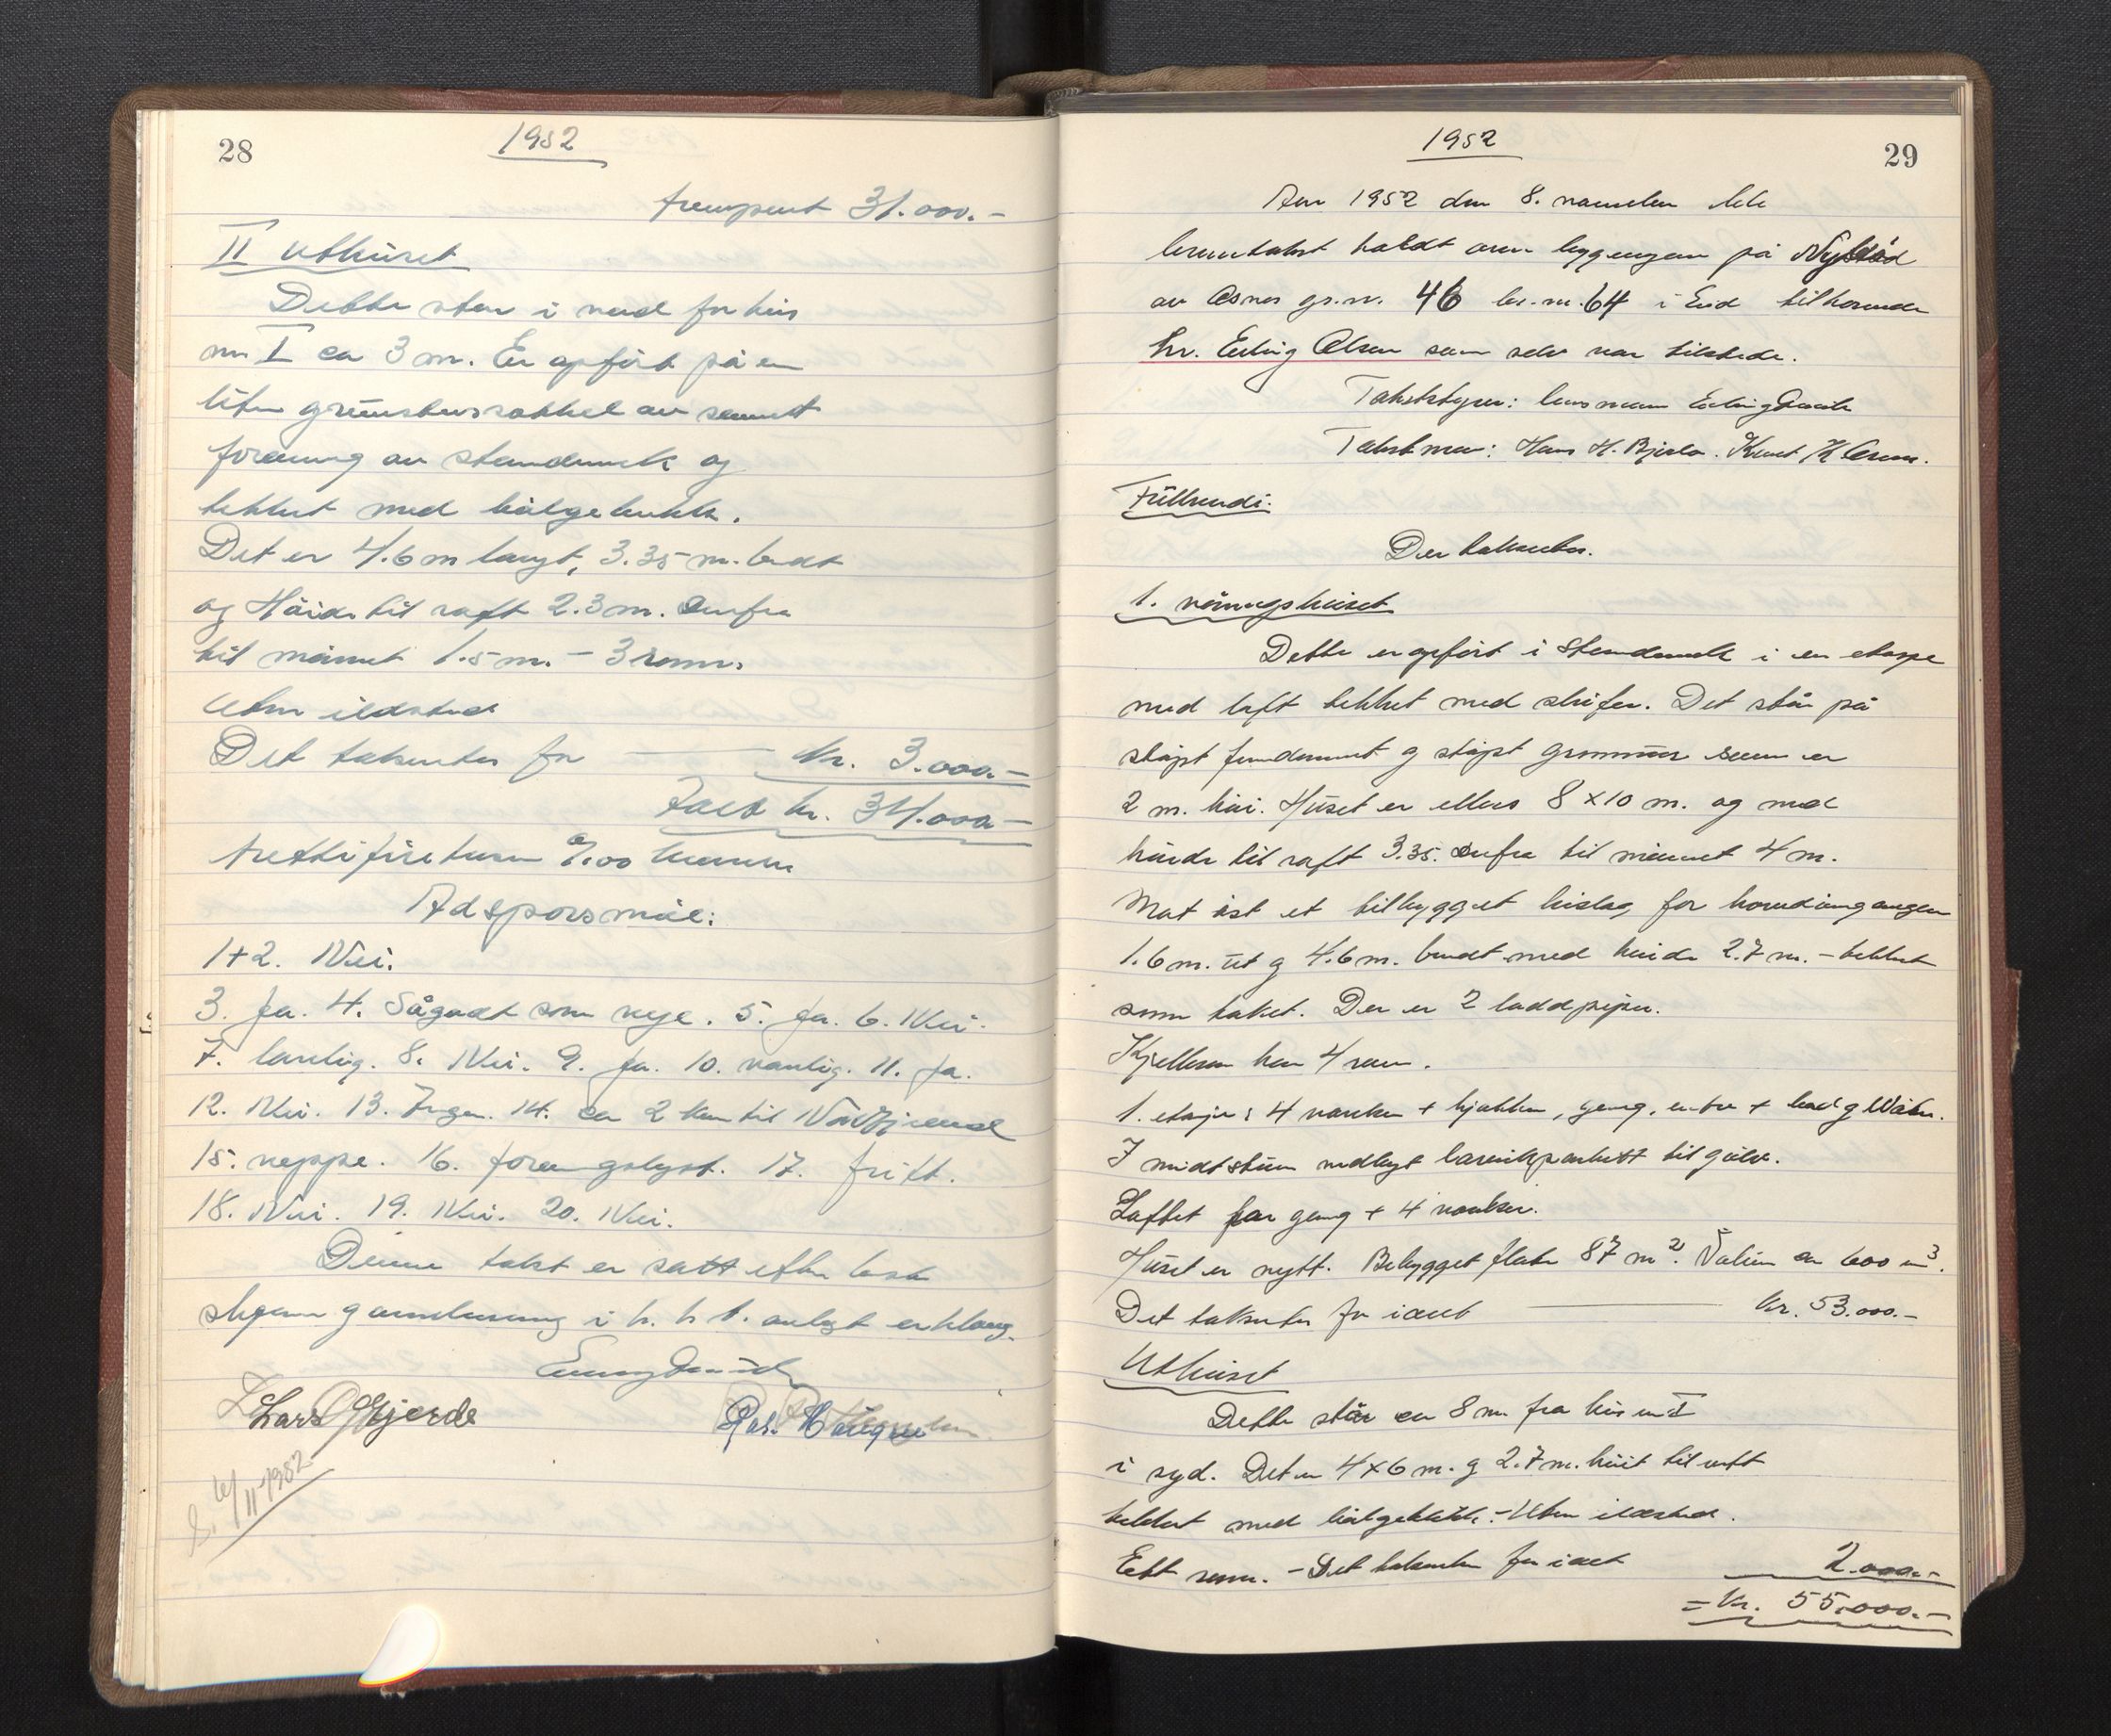 28
1952
Frempent 31.000.-
II Uthuset
Dette står i nord for hus
nr. I ca 3 m. Er opført på en
liten grunnstensokkel av sement
forøvrig av stenderverk og
tekket med bølgeblikk.
Det er 4.6 m langt, 3.35 m. bredt
og Høide til raft 2.3 m. Derfra
til mønnet 1.5 m. - 3 rom.
Uten ildsted
Det takseres for kr. 3.000.-
Ialt kr. 34.000.-
trettifiretusen 0/00 kroner
Adspørsmål:
1+2. Nei.
3. Ja. 4. Så godt som nye. 5. Ja. 6. Nei.
7. lovlig. 8. Nei. 9. Ja. 10. vanlig. 11. Ja.
12. Nei. 13. Ingen. 14. ca 2 km til
15. neppe. 16. 17. fritt.
18. Nei. 19. Nei. 20. Nei.
Denne takst er satt efter beste
skjønn og i h. h. t. avlagt erklæring.
Lars O Gjerde
Ras.
6/11-1952
29
1952
Aar 1952 den 8. november ble
branntakst holdt over bygningen på Nybø
av Osnes gr.nr. 46 br.nr. 64 i Eid tilhørende
hr. Erling Olsen som selv var tilstede.
Takststyrer: lensmann Erling
Takstmenn: Hans H. Bjerlo. Knut K Osnes.
Fullmendi.
Der takseres.
1. våningshuset
Dette er opført i stenderverk i en etasje
med loft tekket med skifer. Det står på
støpt fundament og støpt grunnmur som er
2 m. høi. Huset er ellers 8 x 10 m. og med
høide til raft 3.35. Derfra til mønnet 4 m.
Mot øst et tilbygget bislag for hovedinngangen
1.6 m. ut og 4.6 m. bredt med høide 2.7 m. - tekket
som taket. Der er 2 loddpiper.
Kjelleren har 4 rom.
1. etasje: 4 værelser + kjøkken, gang, entre + bad og Water.
I midtstuen nedlagt larvikparkett til gulv.
Loftet har gang + 4 værelser.
Huset er nytt. Bebygget flate 87 m². Volum ca 600 m³.
Det takseres for i alt kr. 53.000.-
Uthuset
Dette står ca 8 m fra hus nr I
i syd. Det er 4x6 m. og 2.7 m. høit til raft
tekket med bølgeblikk. - Uten ildsted.
Ett rom. - Det takseres for i alt 2.000.-
= Kr. 55.000.-